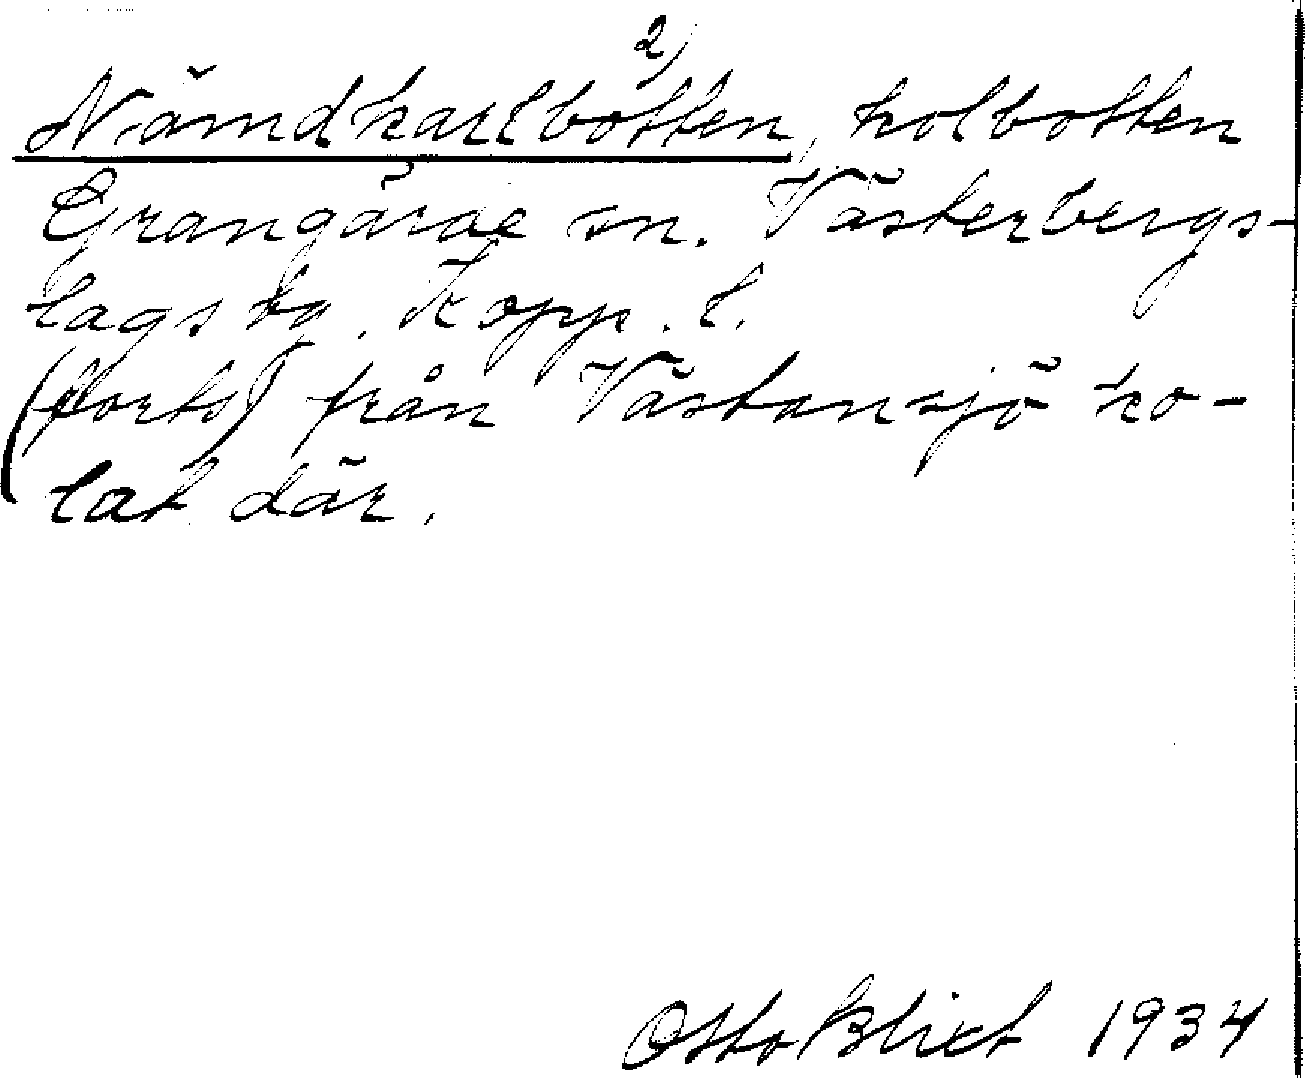 2)
Nämdkarlbotten, kolbotten
Grangärde sn. Västerbergs-
lags bg. Kopp. l.
(forts) från Västansjö ko-
lat där.
Otto Blixt 1934